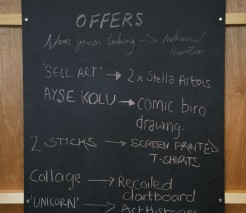 OFFERS
'SELL ART' → 2 x Stella Artois
AYSE KOLU → comic biro
drawing.
2 STICKS → SCREEN PRINTED
T-SHIRTS
Collage → Recoiled
dartboard
'UNICORN' → Art Histories